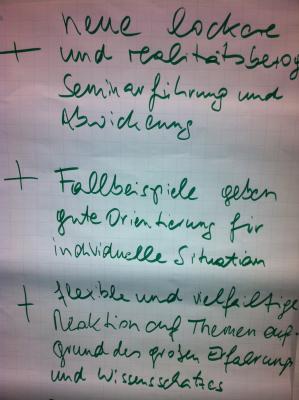 neue lockere
+ und realitätsbezog
Seminarführung und
Abwicklung
+ Fallbeispiele geben
gute Orientierung für
individuelle Situation
+ flexible und vielfältige
Reaktion auf Themen auf-
grund des großen Erfahrung
und Wissensschatzes